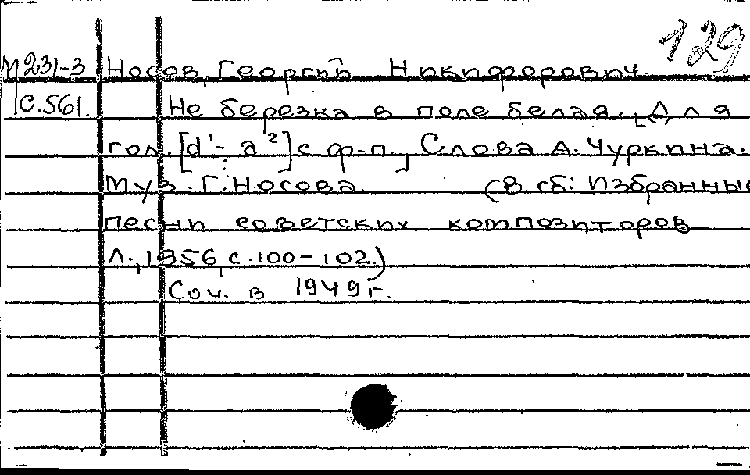 129
М231-3 Носов, Георгий Никифорович
С.561. Не березка в поле белая... Для
гол. [d¹- a²] с ф-п., Слова А. Чуркина.
Муз. Г. Носова (В сб: Избранные
песни советских композиторов
Л., 1956, с. 100-102.)
Соч. в 1949 г.